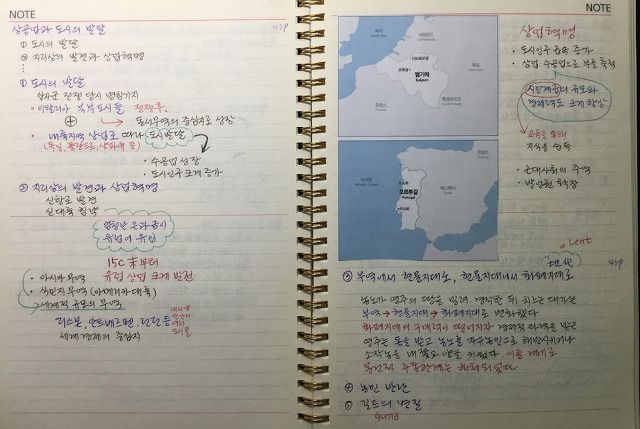 NOTE
상공업과 도시의 발달
① 도시의 발달 43P
② 지리상의 발견과 상업혁명
① 도시의 발달
십자군 전쟁 당시 병참기지
• 이탈리아 북부도시들 전쟁후,
→ 동서무역의 중심지로 성장
• 내륙지역 상업로 따라 도시발달
• 수공업 성장
• 도시인구 크게 증가
② 지리상의 발견과 상업혁명
신항로 발견
신대륙
엄청난 은과 금이
유럽에 유입
15C 末부터
• 아시아 무역 유럽 상업 크게 발전
• 식민지 무역 (아메리카 대륙)
세계적 규모의 무역
리스본, 안트베르펜, 런던 등
세계경제의 중심지
NOTE
벨기에
Belgium
포르투갈
Portugal
상업혁명
• 도시인구 급속 증가
• 상업, 수공업으로 부를 축적
시민계급의 규모와
경제력도 크게 향상
교육을 통해
지식을 습득
• 근대사회의 주역
• 발판
= Lent
③ 부역에서 현물지대로, 현물지대에서 화폐지대로 43P
농노가 영주의 땅을 빌려 경작한 뒤 치르는 대가는
부역 → 현물지대 → 화폐지대로 변화했다
화폐지대의 가치가 떨어지자 경제적 타격을 받는
영주는 돈을 받고 농노를 자유농민으로 해방시키거나
소작농을 내쫓고 양을 키웠다 이를 계기로
봉건적 주종관계는 해체되었다
④ 농민 반란
⑤ 길드의 변질
Guild